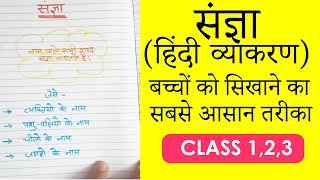 संज्ञा
नाम वाले सभी शब्द
संज्ञा कहलाते हैं।
जैसे -
व्यक्तियों के नाम
पशु-पक्षियों के नाम
चीजों के नाम
जगहों के नाम
संज्ञा
(हिंदी व्याकरण)
बच्चों को सिखाने का
सबसे आसान तरीका
CLASS 1,2,3